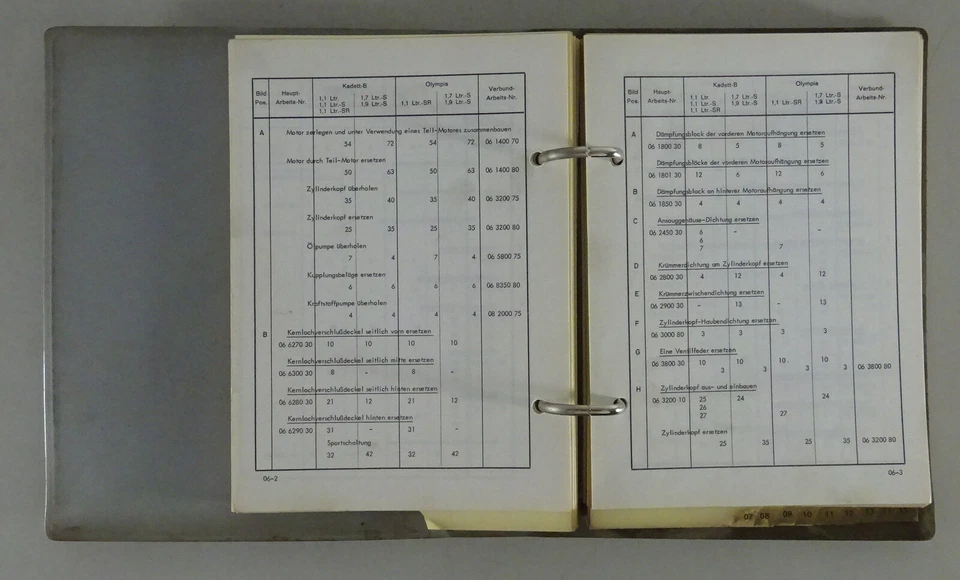 Kadett-B Olympia
Bild Haupt- 1,1 Ltr. 1,7 Ltr.-S 1,7 Ltr.-S Verbund-
Pos. Arbeits-Nr. 1,1 Ltr.-S 1,9 Ltr.-S 1,1 Ltr.-SR 1,9 Ltr.-S Arbeits-Nr.
1,1 Ltr.-SR
A Motor zerlegen und unter Verwendung eines Teil-Motores zusammenbauen
54 72 54 72 06 1400 70
Motor durch Teil-Motor ersetzen
50 63 50 63 06 1400 80
Zylinderkopf überholen
35 40 35 40 06 3200 75
Zylinderkopf ersetzen
25 35 25 35 06 3200 80
Ölpumpe überholen
7 4 7 4 06 5800 75
Kupplungsbeläge ersetzen
6 6 6 6 06 8350 80
Kraftstoffpumpe überholen
4 4 4 4 08 2000 75
B Kernlochverschlußdeckel seitlich vorn ersetzen
06 6270 30 10 10 10 10
Kernlochverschlußdeckel seitlich mitte ersetzen
06 6300 30 8 - 8 -
Kernlochverschlußdeckel seitlich hinten ersetzen
06 6280 30 21 12 21 12
Kernlochverschlußdeckel hinten ersetzen
06 6290 30 31 - 31 -
Sportschaltung
32 42 32 42
06-2
Kadett-B Olympia
Bild Haupt- 1,1 Ltr. 1,7 Ltr.-S 1,7 Ltr.-S Verbund-
Pos. Arbeits-Nr. 1,1 Ltr.-S 1,9 Ltr.-S 1,1 Ltr.-SR 1,9 Ltr.-S Arbeits-Nr.
1,1 Ltr.-SR
A Dämpfungsblock der vorderen Motoraufhängung ersetzen
06 1800 30 8 5 8 5
Dämpfungsblöcke der vorderen Motoraufhängung ersetzen
06 1801 30 12 6 12 6
B Dämpfungsblock an hinterer Motoraufhängung ersetzen
06 1850 30 4 4 4 4
C Ansauggehäuse-Dichtung ersetzen
06 2450 30 6 - -
6
7 7
D Krümmerdichtung am Zylinderkopf ersetzen
06 2800 30 4 12 4 12
E Krümmerzwischendichtung ersetzen
06 2900 30 - 13 - 13
F Zylinderkopf-Haubendichtung ersetzen
06 3000 80 3 3 3 3
G Eine Ventilfeder ersetzen
06 3800 30 10 10 10 10
3 3 3 3 06 3800 80
H Zylinderkopf aus- und einbauen
06 3200 10 25 24 24
26
27 27
Zylinderkopf ersetzen
25 35 25 35 06 3200 80
06-3
07 08 09 10 11 12